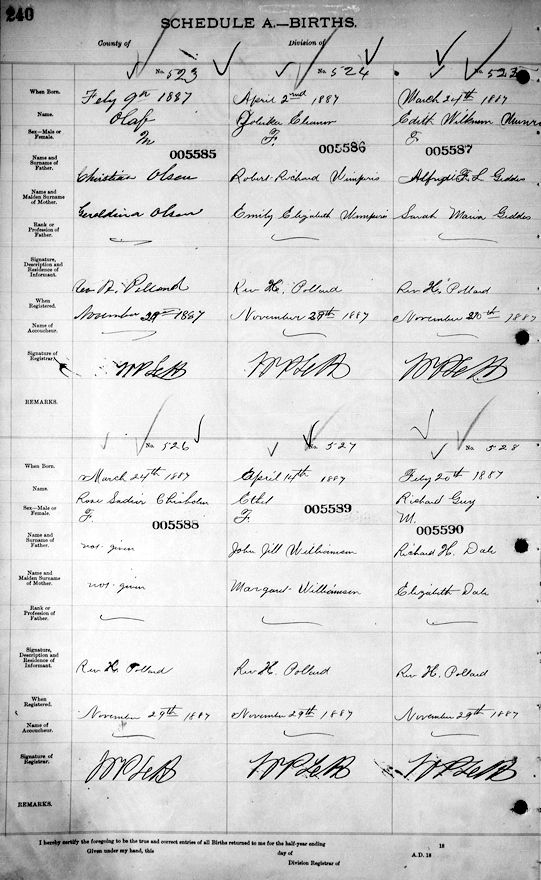 240
SCHEDULE A.—BIRTHS.
County of
Division of
No. 523 No. 524 No. 525
When Born. Feby 9th 1887 April 2nd 1887 March 24th 1887
Name. Olaf Eleanor Edith Wilkinson Munro
Sex—Male or Female. M F. F
005585 005586 005587
Name and Surname of Father. Christian Olsen Robert Richard Wimperis L Geddes
Name and Maiden Surname of Mother. Geraldina Olsen Emily Elizabeth Wimperis Sarah Maria Geddes
Rank or Profession of Father.
Signature, Description and Residence of Informant. Rev H. Pollard Rev H. Pollard Rev H. Pollard
When Registered. November 29th 1887 November 29th 1887 November 29th 1887
Name of Accoucheur.
Signature of Registrar.
REMARKS.
No. 526 No. 527 No. 528
When Born. March 24th 1887 April 14th 1887 Feby 20th 1887
Name. Rose Chisholm Ethel Richard Guy
Sex—Male or Female. F. F. M.
005588 005589 005590
Name and Surname of Father. not given John Williamson Richard H. Dale
Name and Maiden Surname of Mother. not given Margaret Williamson Elizabeth Dale
Rank or Profession of Father.
Signature, Description and Residence of Informant. Rev H. Pollard Rev H. Pollard Rev H. Pollard
When Registered. November 29th 1887 November 29th 1887 November 29th 1887
Name of Accoucheur.
Signature of Registrar.
REMARKS.
I hereby certify the foregoing to be the true and correct entries of all Births returned to me for the half-year ending 18
Given under my hand, this day of A.D. 18
Division Registrar of